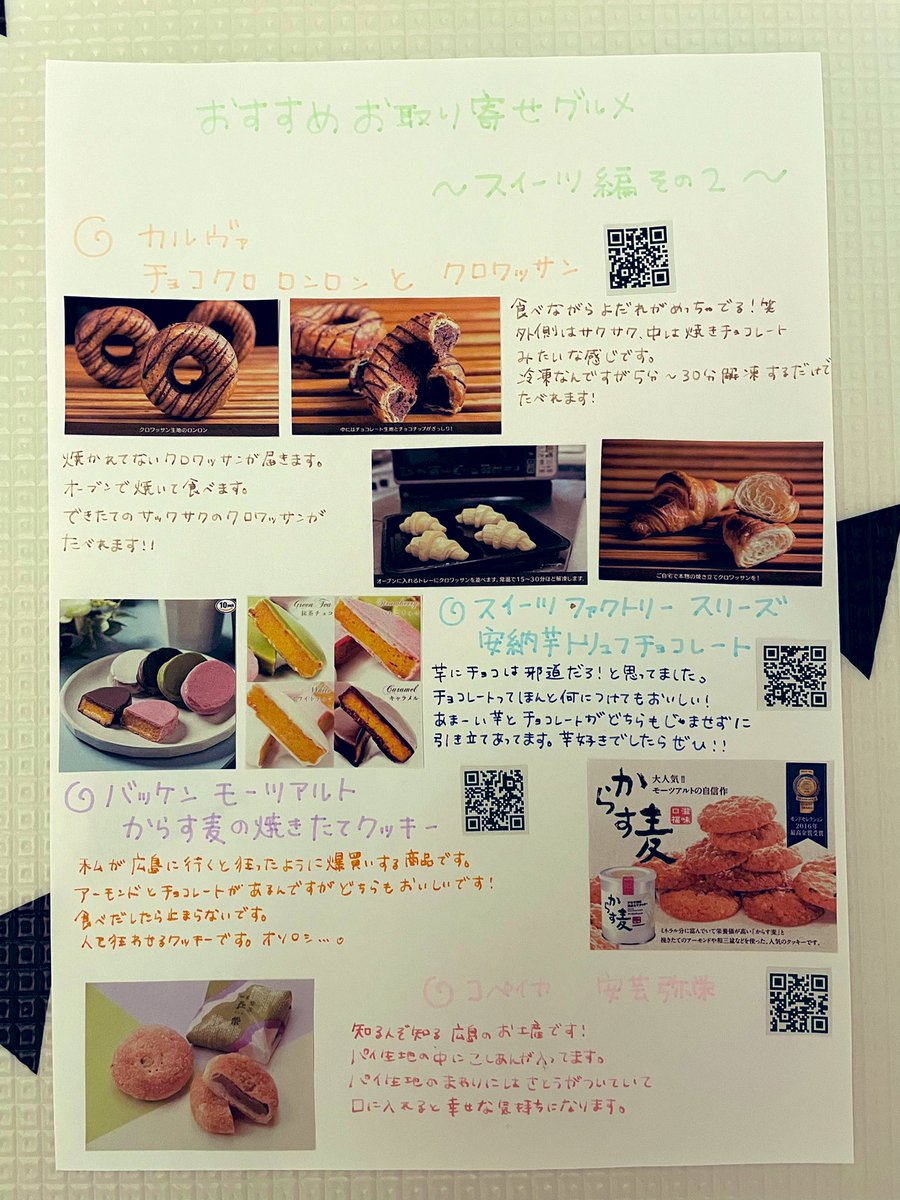 おすすめお取り寄せグルメ
～スイーツ編その2～
カルヴァ
チョコクロロンロンと クロワッサン
食べながらよだれがめっちゃでる！笑
外側はサクサク、中は焼きチョコレート
みたいな感じです。
冷凍なんですが5分～30分解凍するだけで
たべれます！
クロワッサン生地のロンロン
中にはチョコレート生地とチョコチップがぎっしり！
焼かれてないクロワッサンが届きます。
オーブンで焼いて食べます。
できたてのサックサクのクロワッサンが
たべれます！！
オーブンに入れるトレーにクロワッサンを並べます。常温で15～30分ほど解凍します。
ご自宅で本格の焼き立てクロワッサンを！
スイーツファクトリー スリーズ
安納芋トリュフチョコレート
芋にチョコは邪道だろ！と思ってました。
チョコレートってほんと何につけてもおいしい！
あまーい芋とチョコレートがどちらもじゃませずに
引き立てあってます。芋好きでしたらぜひ！！
Green Tea
抹茶チョコ
Strawberry
White
Caramel
キャラメル
バッケン モーツアルト
からす麦の焼きたてクッキー
私が広島に行くと狂ったように爆買いする商品です。
アーモンドとチョコレートがあるんですがどちらもおいしいです！
食べだしたら止まらないです。
人を狂わせるクッキーです。オソロシ…。
大人気!!
モーツアルトの自信作
からす麦
口福
滋味
モンドセレクション
2016年
最高金賞受賞
からす麦
ミネラル分に富んでいて栄養価が高い「からす麦」と
挽きたてのアーモンドや和三盆などを使った、人気のクッキーです。
コペイカ 安芸弥栄
知る人ぞ知る広島のお土産です！
パイ生地の中にこしあんが入ってます。
パイ生地のまわりにはさとうがついていて
口に入れると幸せな気持ちになります。